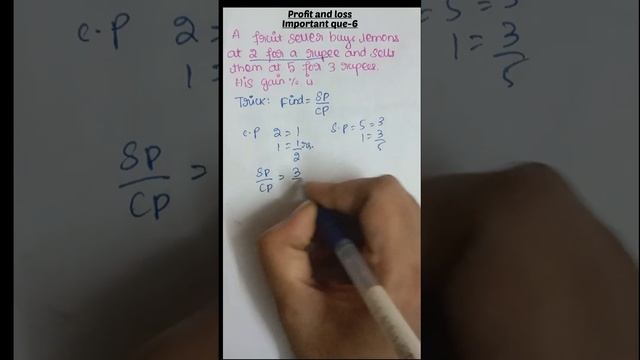 Profit and loss
Important que-6
A fruit seller buys lemons
at 2 for a rupee and sells
them at 5 for 3 rupees.
His gain % is
Trick: Find = SP/CP
C.P 2 = 1
1 = 1/2 rs.
S.P = 5 = 3
1 = 3/5
SP/CP = 3